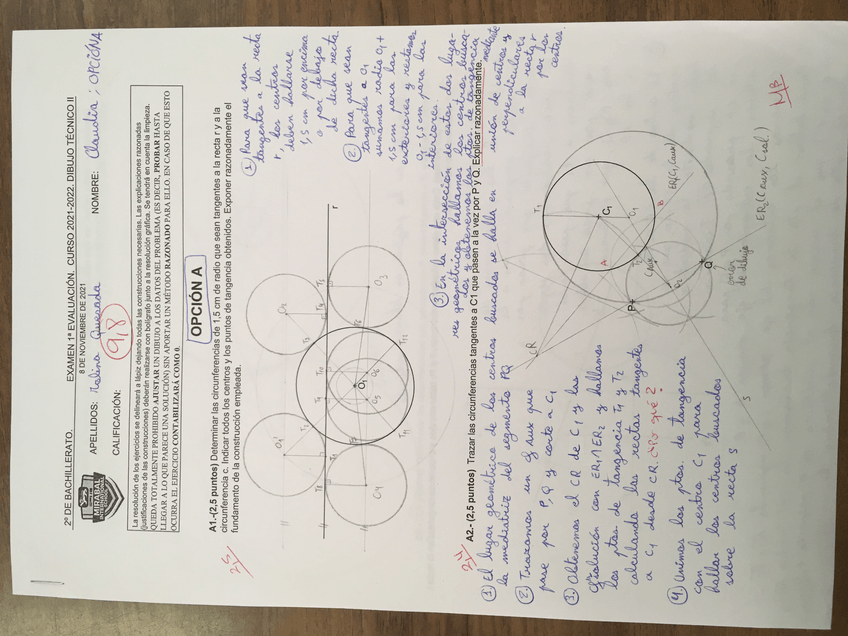 2º DE BACHILLERATO. EXAMEN 1ª EVALUACIÓN. CURSO 2021-2022. DIBUJO TÉCNICO II
8 DE NOVIEMBRE DE 2021
MIRABAL
APELLIDOS: Molina Quesada NOMBRE: Claudia ; OPCIÓN A
CALIFICACIÓN: 9,8
La resolución de los ejercicios se delineará a lápiz dejando todas las construcciones necesarias. Las explicaciones razonadas
(justificaciones de las construcciones) deberán realizarse con bolígrafo junto a la resolución gráfica. Se tendrá en cuenta la limpieza.
QUEDA TOTALMENTE PROHIBIDO AJUSTAR UN DIBUJO A LOS DATOS DEL PROBLEMA (ES DECIR, PROBAR HASTA
LLEGAR A LO QUE PARECE UNA SOLUCIÓN) SIN APORTAR UN MÉTODO RAZONADO PARA ELLO. EN CASO DE QUE ESTO
OCURRA EL EJERCICIO CONTABILIZARÁ COMO 0.
OPCIÓN A
A1.-(2,5 puntos) Determinar las circunferencias de 1,5 cm de radio que sean tangentes a la recta r y a la
circunferencia c. Indicar todos los centros y los puntos de tangencia obtenidos. Exponer razonadamente el
fundamento de la construcción empleada.
2,5
① Para que sean
tangentes a la recta
r los centros
deben hallarse
1,5 cm por encima
o por debajo
de dicha recta.
② Para que sean
tangentes a O1
sumamos radio O1 +
1,5 cm para las
exteriores y restamos
O1 - 1,5 cm para las
interiores.
③ En la intersección de estos dos luga-
res geométricos hallamos los centros busca-
dos y obtenemos los ptos. de tangencia
mediante
unión de centros y
perpendiculares
a la recta r
por los
centros.
r
O3
O4
O5
O6
O1
A2.- (2,5 puntos) Trazar las circunferencias tangentes a C1 que pasen a la vez por P y Q. Explicar razonadamente.
① El lugar geométrico de los centros buscados se halla en
la mediatriz del segmento PQ
② Trazamos un cf aux que
pase por P, Q y corte a C1
③ Obtenemos el CR de C1 y las
cf solución con ER1 ∩ ER2 y hallamos
los ptos de tangencia T1 y T2
calculando las rectas tangentes
a C1 desde CR. ¿Por qué?
④ Unimos los ptos. de tangencia
con el centro C1 para
hallar los centros buscados
sobre la recta s
CR
T1
C1
O1
A
B
T2
Caux
O2
P
Q
s
ER1(C1, Caux)
ER2(Caux, Csol)
error
de dibujo
MB